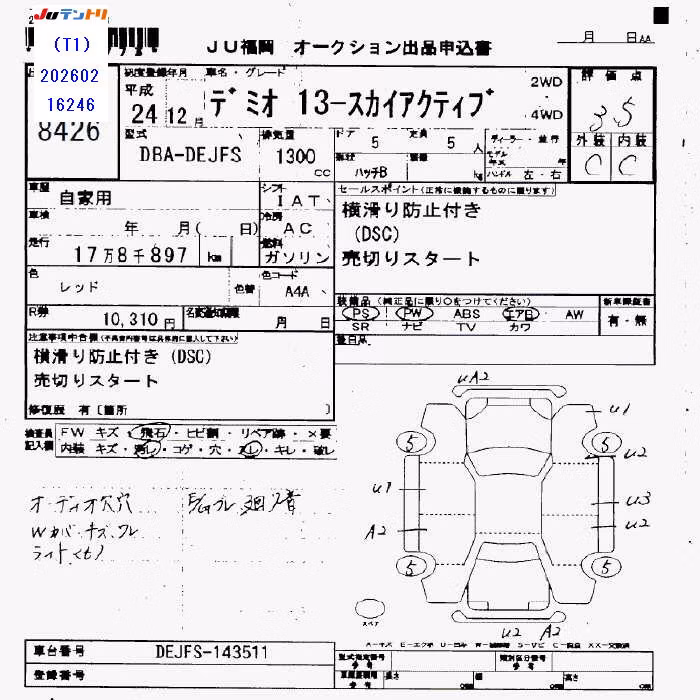 JUテントリ
(T1)
202602
16246
8426
JU福岡 オークション出品申込書
月 日 AA
初度登録年月 車名・グレード
平成
24 12月
デミオ 13-スカイアクティブ
2WD
4WD
評価点
3.5
外装 内装
C C
型式
DBA-DEJFS
排気量
1300
cc
ドア
5
定員
5 人
形状
ハッチB
kg
ディーラー・並行
モデル年式 年
ハンドル 左・右
車歴
自家用
シフト
IAT
車検
年 月( 日)
冷房
AC
走行
17万8千897 km
燃料
ガソリン
色
レッド
色替
色コード
A4A
R券
10,310円
名変期限
月 日
セールスポイント(正常に機能するものに限ります)
横滑り防止付き
(DSC)
売切りスタート
装備品(純正品に限り○をつけてください)
PS PW ABS エアB AW
SR ナビ TV カワ
新車保証書
有・無
注意事項申告欄
横滑り防止付き(DSC)
売切りスタート
修復歴 有〔箇所 〕
検査員記入欄
FW キズ・飛石・ヒビ割・リペア跡・×要
内装 キズ・汚レ・コゲ・穴・スレ・キレ・破レ
オーディオ欠穴
Wカバーキズ、ワレ
uA2
u1
5
5
u2
u1
u3
A2
u2
5
5
スペア
u2 A2
車台番号
DEJFS-143511
登録番号
型式指定番号
類別区分番号
長さ
cm
幅
cm
高さ
cm